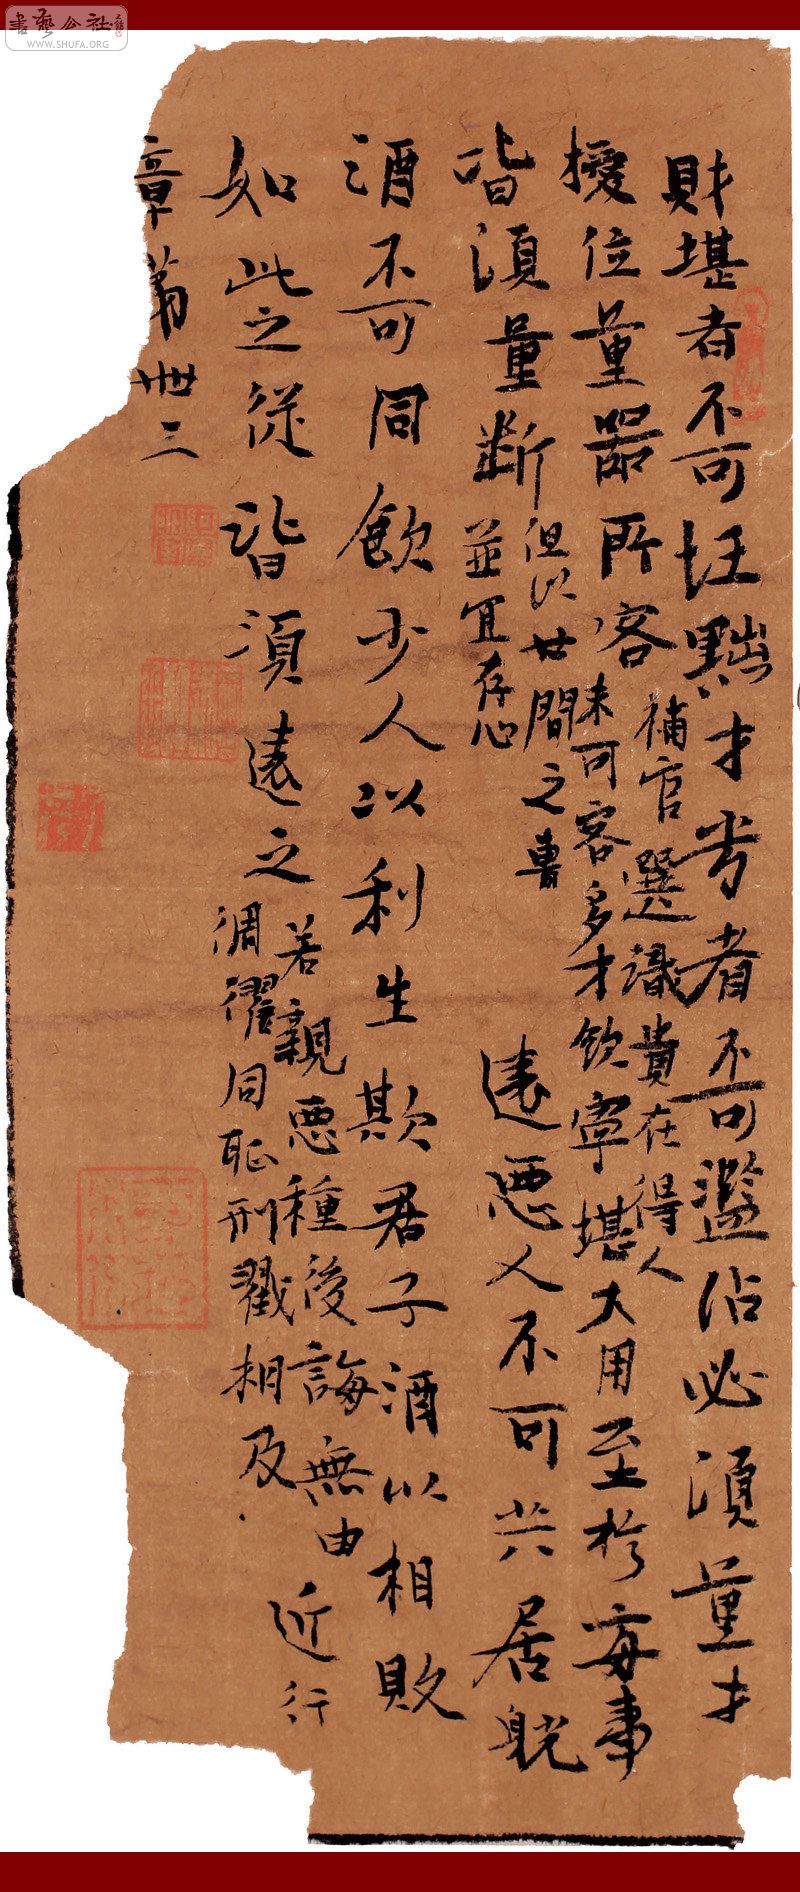 書藝公社
WWW.SHUFA.ORG
財堪者不可抂黜才劣者不可濫沾必須量才
授位量器所容
補官選識貴在得人
未可容多才飲寧堪大用
至於每事
皆須量斷
但以世間之
並宜存心
遠惡人不可共居躭
酒不可同飲少人以利生欺君子酒以相敗
如此之從皆須遠之
若親惡種後誨無由
同恥刑戮相及
近行
章第卌三